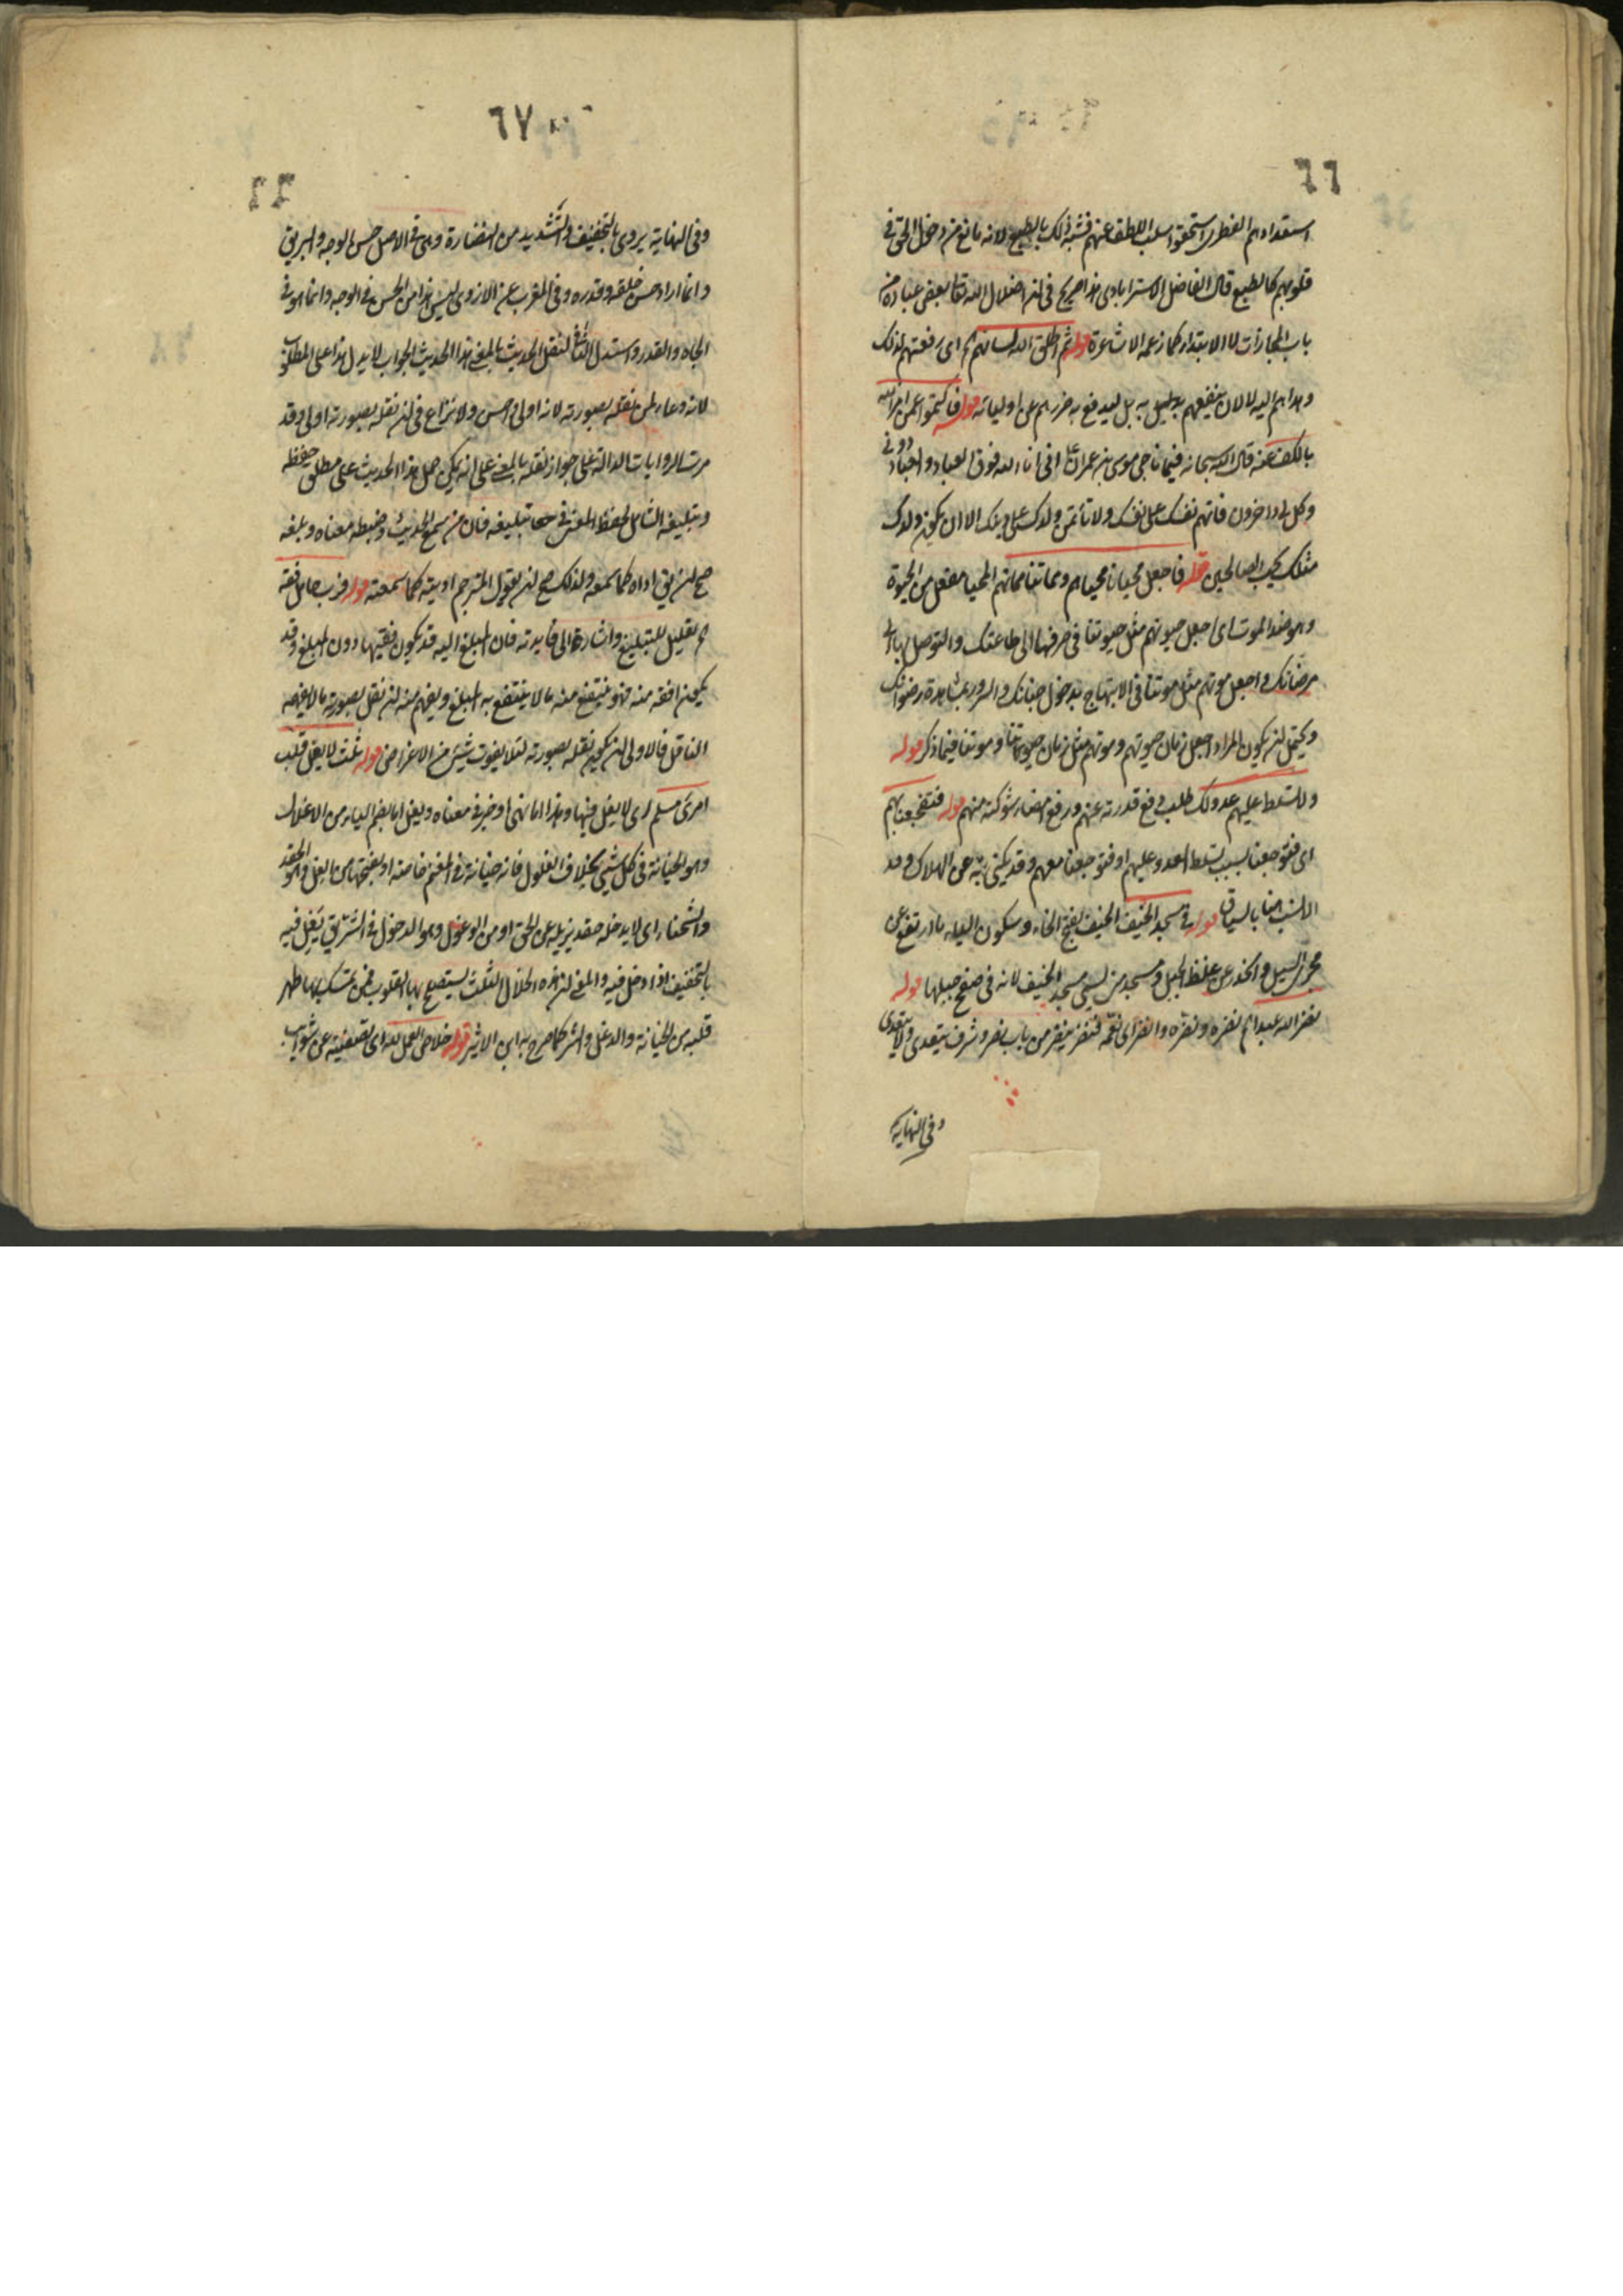 ٦٦
استعدادهم الفطرى استحقوا سلب اللطف عنهم فشبه ذلك بالطبع لانه مانع من دخول الحق فى
قلوبهم كالطبع قال الفاضل الاسترابادى هذا صريح فى ان اضلال الله تعا بعض عباده من
باب المجازات لا الابتداء كما زعمه الاشاعرة قوله ثم اطلق الله لسانهم اى رفعتهم لذلك
وهداهم اليه لا لان ينفعهم بل ليدفع به ضررهم عن اوليائه قوله فاكتموا عمن امر الله
بالكف عنه قال الله سبحانه فيما ناجى موسى بن عمران انى انا الله فوق العباد والعباد دونى
وكل لى داخرون فاتهم نفسك على نفسك ولا تأتمن ولدك على دينك الا ان يكون ولدك
مثلك يحب الصالحين قوله فاجعل محيانا محياهم ومماتنا مماتهم المحيا مفعل من الحيوة
وهو ضد الموت اى اجعل حيوتهم مثل حيوتنا فى صرفها الى طاعتك والتوصل بها الى
مرضاتك واجعل موتهم مثل موتنا فى الابتهاج بدخول جنانك والسرور بمشاهدة رضوانك
ويحتمل ان يكون المراد اجعل زمان حيوتهم وموتهم مثل زمان حيوتنا وموتنا فيما ذكر قوله
ولا تسلط عليهم عدوا لك طلب دفع قدرته عنهم ورفع مضار شوكته منهم قوله فتفجعنا بهم
اى فتوجعنا بسبب تسلط العدو عليهم او فتوجعنا معهم وقد يكنى به عن الهلاك وهو
الانسب هنا بالسياق قوله فى مسجد الخيف الخيف بفتح الخاء وسكون الياء ما ارتفع عن
مجرى السيل وانحدر عن غلظ الجبل ومسجد منى يسمى مسجد الخيف لانه فى صفح جبلها قوله
نضر الله عبدا اه نضره ونضره وانضره اى نعمه فنضر ينضر من باب نصر وشرف يتعدى ولا يتعدى
وفى النهاية
٦٧
وفى النهاية يروى بالتخفيف والتشديد من النضارة وهى فى الاصل حسن الوجه والبريق
وانما اراد حسن خلقه وقدره وفى المغرب عن الازدى ليس هذا من الحسن فى الوجه وانما هو فى
الجاه والقدر واستدل المانع لنقل الحديث بالمعنى بهذا الحديث والجواب لا يدل هذا على المطلوب
لانه دعاء لمن نقله بصورته لانه اولى احسن ولا نزاع فى ان نقله بصورته اولى وقد
مرت الروايات الدالة على جواز نقله بالمعنى على انه يمكن حمل هذا الحديث على مطلق حفظه
وتبليغه الشامل لحفظ المعنى فى تبليغه فان من سمع الحديث وضبط معناه وبلغه
صح ان يق اداه كما سمعه ولذلك صح ان يقول المترجم اديته كما سمعته قوله فرب حامل فقه
اه تعليل للتبليغ واشارة الى فايدته فان المبلغ اليه قد يكون فقيها دون المبلغ وقد
يكون افقه منه فهو ينتفع منه بما لا ينتفع به المبلغ ويفهم منه ان نقل بصورته ما لا يفهمه
الناقل فالاولى ان يكون نقله بصورته لئلا يفوت شيئ من الاغراض قوله ثلث لا يغل قلب
امرئ مسلم اى لا يغل فيها وهذا اما نهى او خبر فى معناه ويغل اما بضم الياء من الاغلال
وهو الخيانة فى كل شيئ بخلاف الغلول فانه خيانة فى المغنم خاصة او بفتحها من الغل وهو الحقد
والشحناء اى لا يدخله حقد يزيله عن الحق او من الوغول وهو الدخول فى الشر يق يغل فيه
بالتخفيف اذا دخل فيه والمعنى ان هذه الخلال الثلث يستصلح بها القلوب فمن تمسك بها طهر
قلبه من الخيانة والدغل والشر كما صرح به ابن الاثير قوله اخلاص العمل لله اى تصفيته عن شوايب